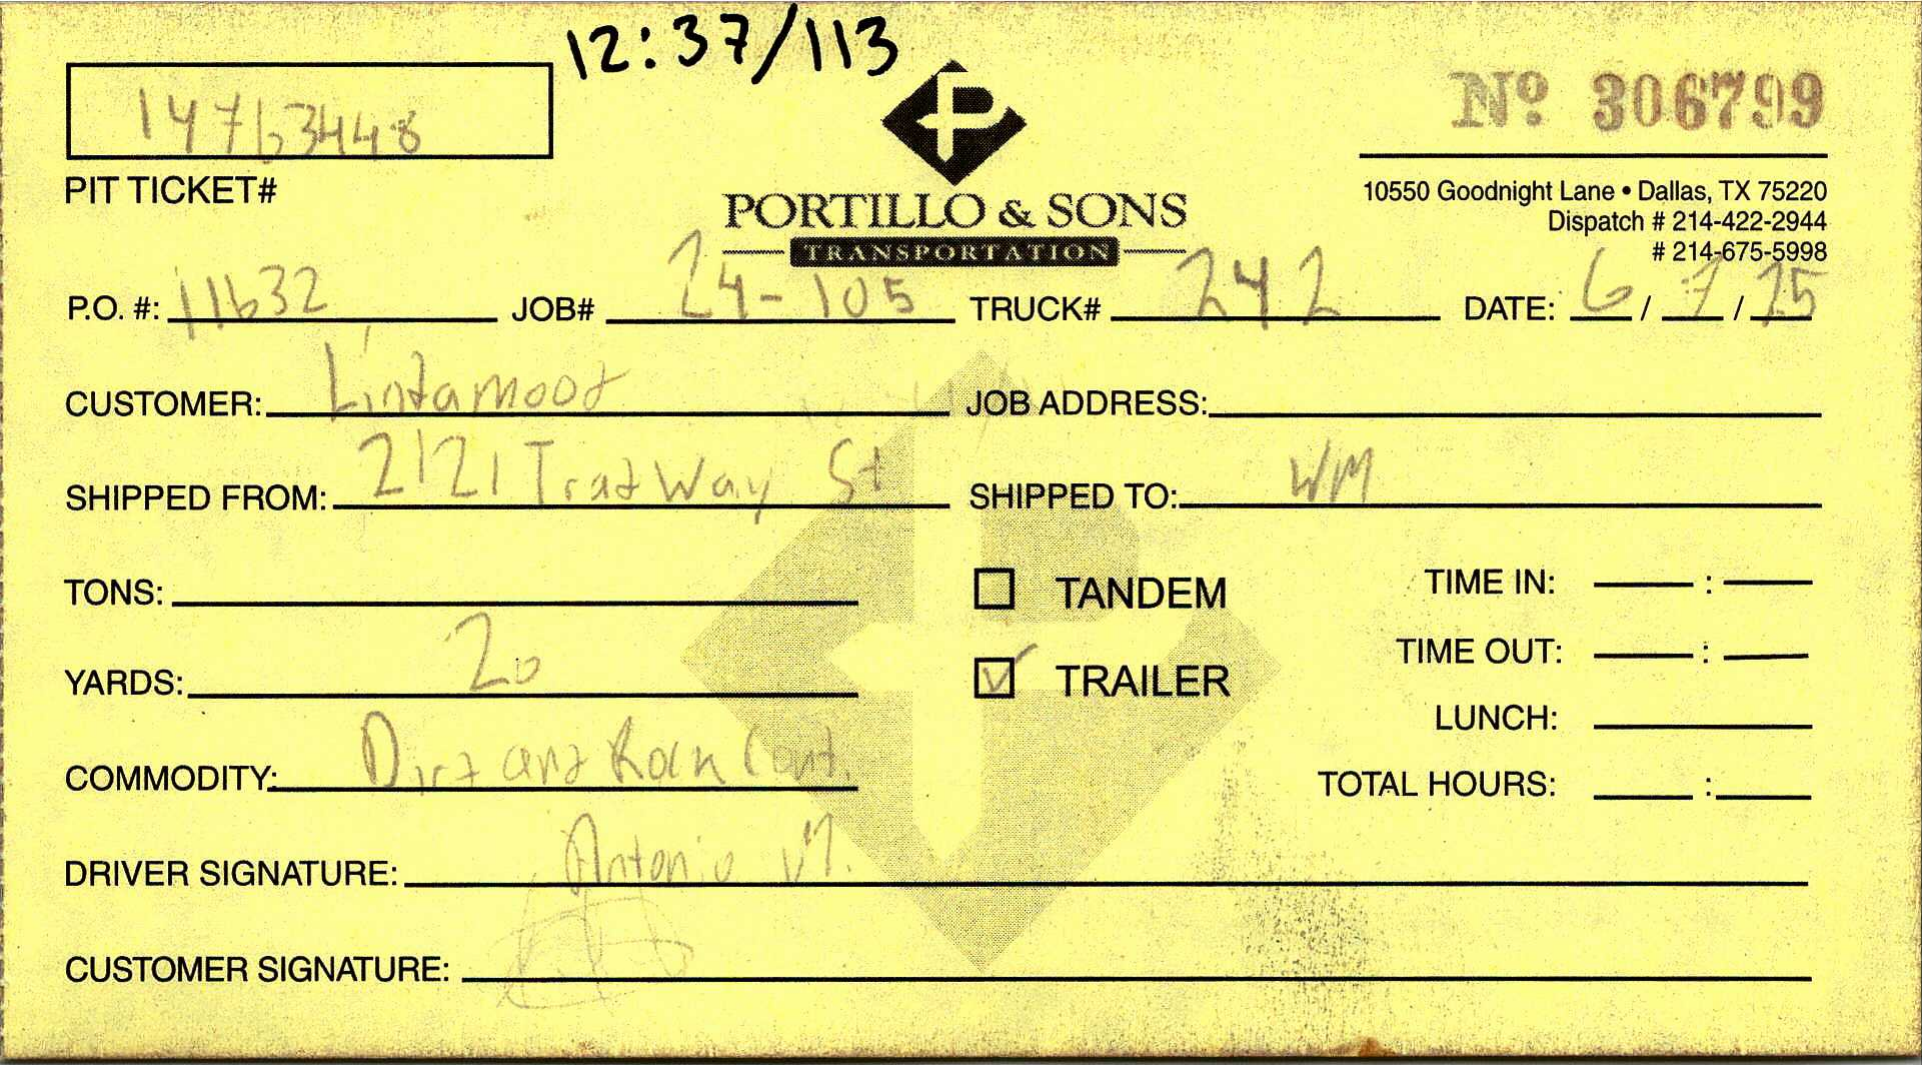 12:37/113
14763448
PIT TICKET#
Nº 306799
PORTILLO & SONS
TRANSPORTATION
10550 Goodnight Lane • Dallas, TX 75220
Dispatch # 214-422-2944
# 214-675-5998
P.O. #: 11632 JOB# 24-105 TRUCK# 242 DATE: 6/7/25
CUSTOMER: Lindamood JOB ADDRESS:
SHIPPED FROM: 2121 TradWay St SHIPPED TO: WM
TONS:
TANDEM
TIME IN: :
YARDS: 20
TRAILER
TIME OUT: :
LUNCH:
COMMODITY: Dirt and Rock Cont.
TOTAL HOURS: :
DRIVER SIGNATURE: Antonio M.
CUSTOMER SIGNATURE: